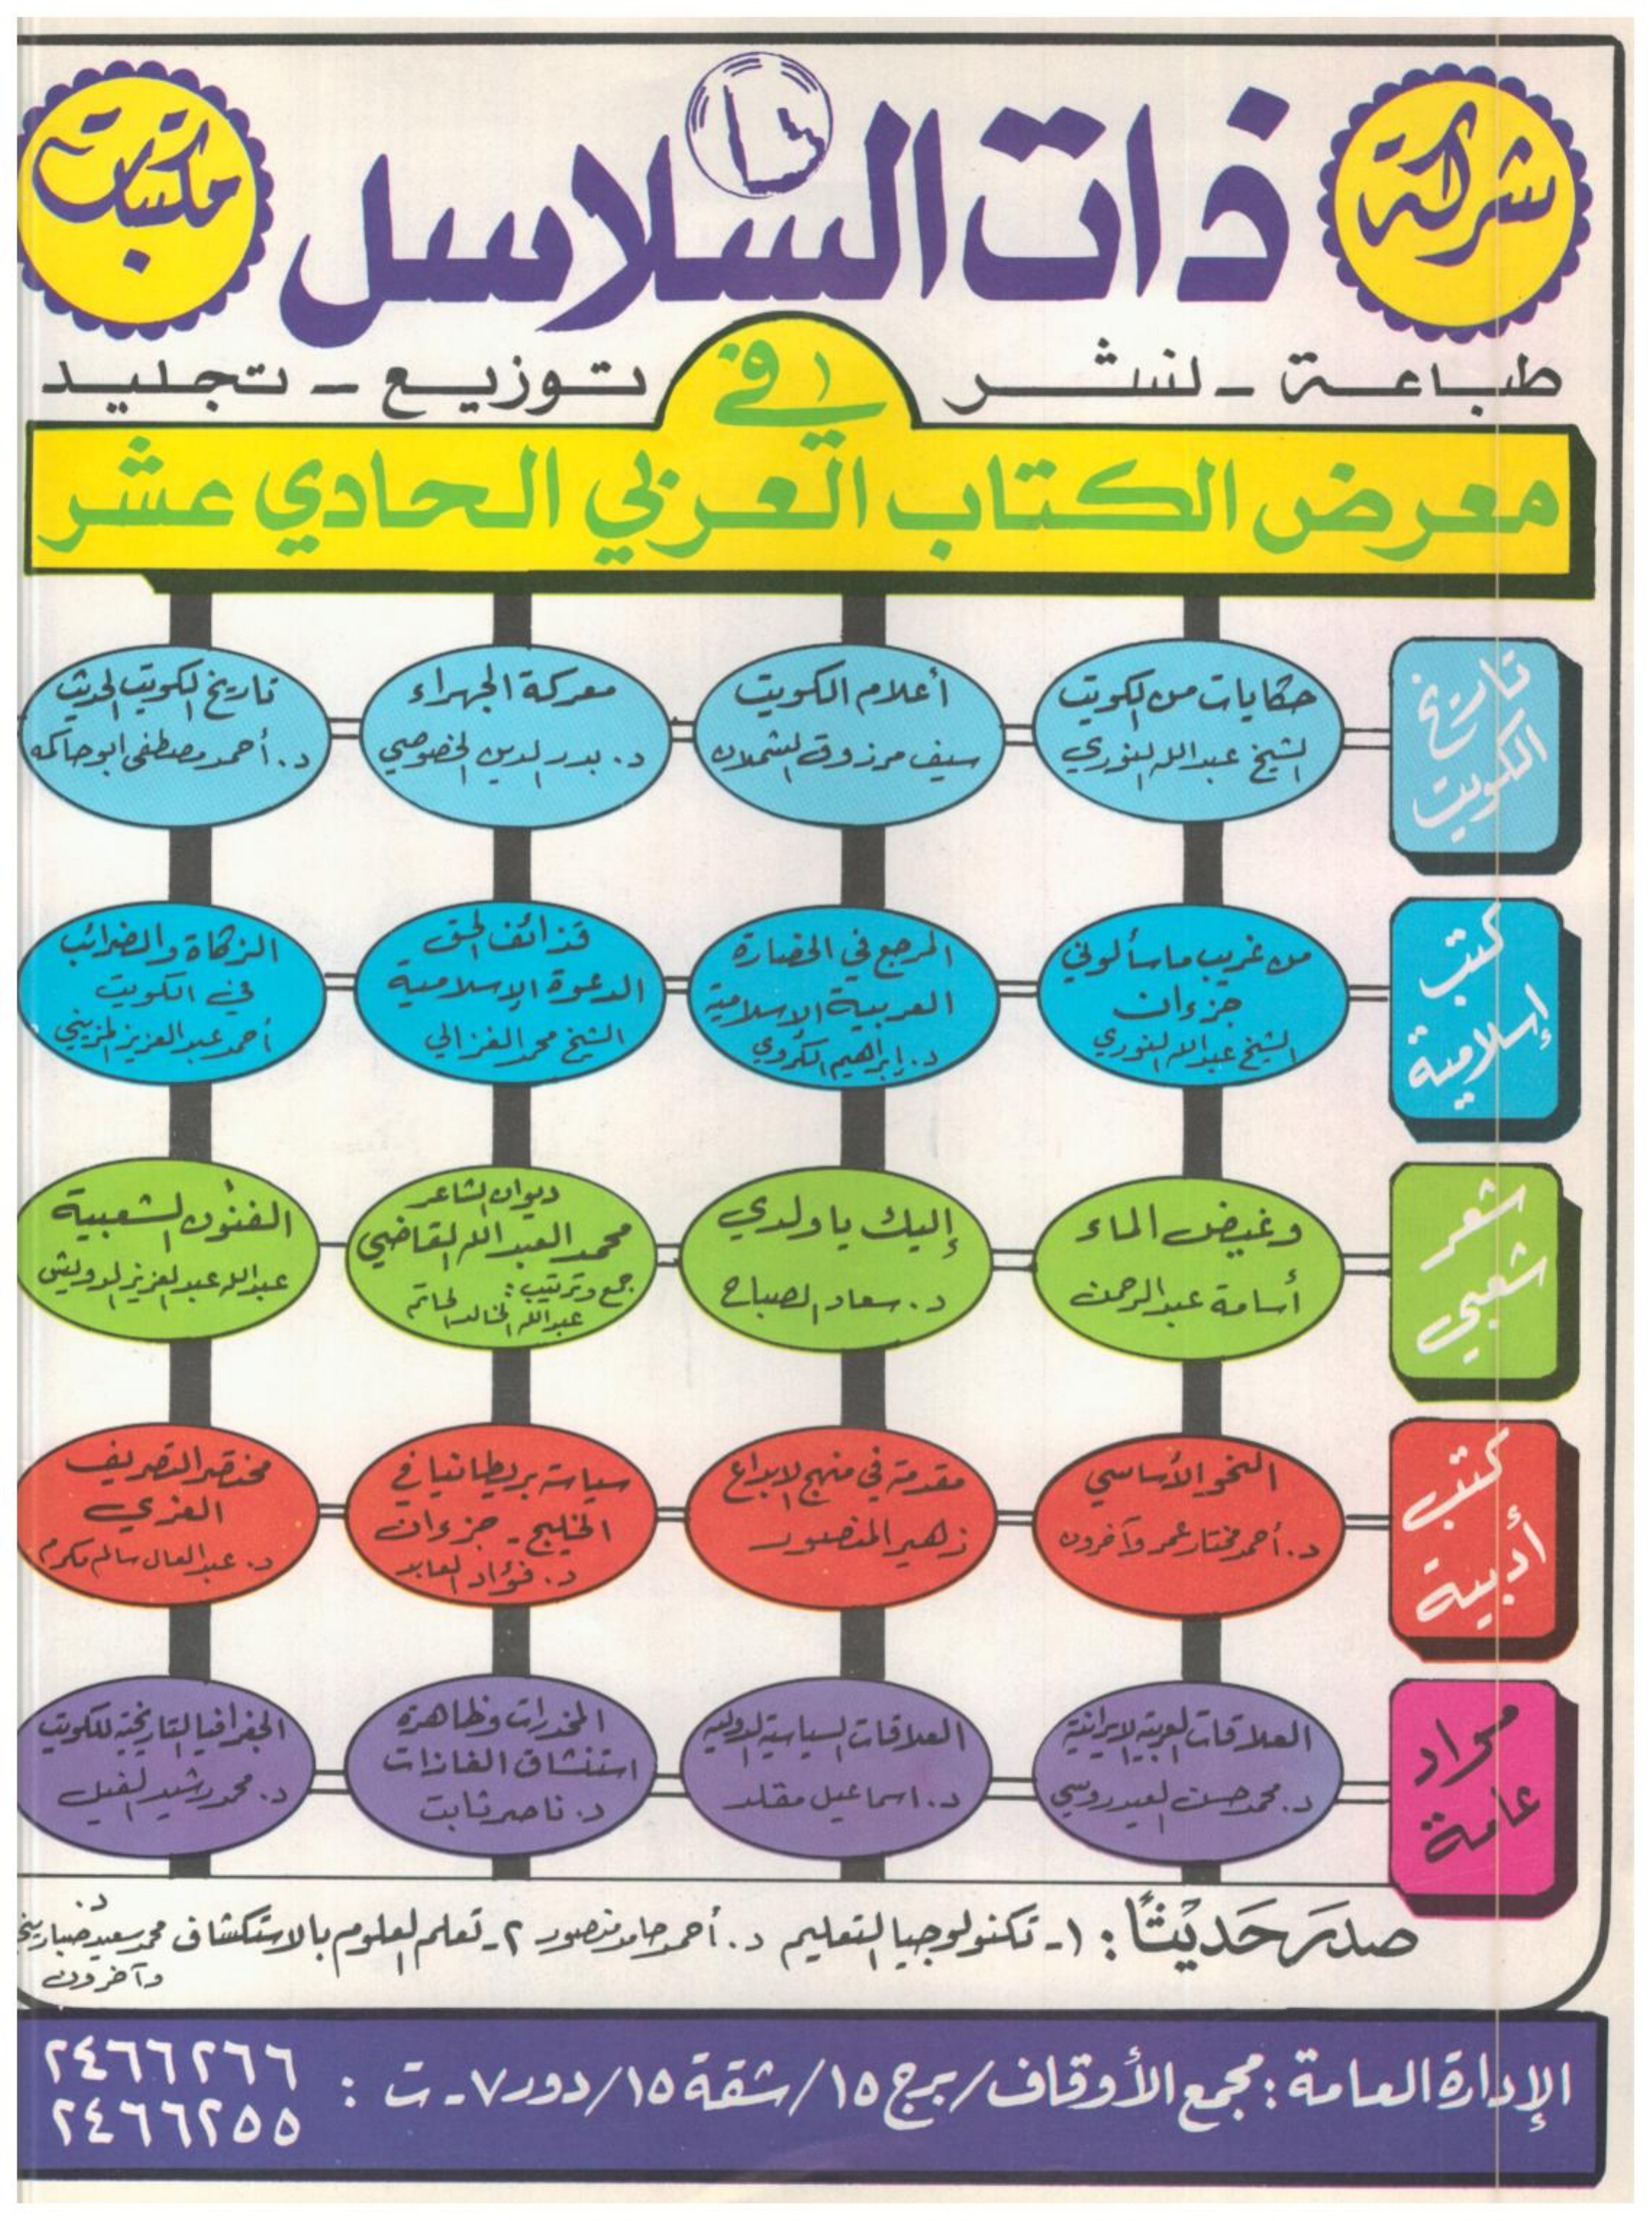 شركة
ذات السلاسل
مكتبات
طباعة - نشر
توزيع - تجليد
في
معرض الكتاب العربي الحادي عشر
تاريخ
الكويت
حكايات من الكويت
الشيخ عبدالله النوري
أعلام الكويت
سيف مرزوق الشملان
معركة الجهراء
د. بدر الدين الخصوصي
تاريخ الكويت الحديث
د. أحمد مصطفى ابو حاكمه
كتب
إسلامية
من غريب ما سألوني
جزءان
الشيخ عبدالله النوري
المرجع في الحضارة
العربية الاسلامية
د. إبراهيم الكروي
قذائف الحق
الدعوة الإسلامية
الشيخ محمد الغزالي
الزكاة والضرائب
في الكويت
أحمد عبدالعزيز المزيني
شعر
شعبي
وغيض الماء
أسامة عبدالرحمن
إليك يا ولدي
د. سعاد الصباح
ديوان الشاعر
محمد العبدالله القاضي
جمع وترتيب:
عبدالله الخالد الحاتم
الفنون الشعبية
عبدالله عبدالعزيز الدويش
كتب
أدبية
النحو الأساسي
د. أحمد مختار عمر وآخرون
مقدمة في منهج الابداع
زهير المنصور
سياسة بريطانيا في
الخليج - جزءان
د. فؤاد العابد
مختصر التصريف
العزي
د. عبدالعال سالم مكرم
مواد
عامة
العلاقات العربية الايرانية
د. محمد حسن العيدروسي
العلاقات السياسية الدولية
د. اسماعيل مقلد
المخدرات وظاهرة
استنشاق الغازات
د. ناصر ثابت
الجغرافيا التاريخية للكويت
د. محمد رشيد الفيل
صدر حديثًا: ١- تكنولوجيا التعليم د. أحمد حامد منصور ٢- تعلم العلوم بالاستكشاف د. محمد سعيد صباريني
وآخرون
الإدارة العامة: مجمع الأوقاف/برج ١٥/شقة ١٥/دور ٧- ت:
٢٤٦٦٢٦٦
٢٤٦٦٢٥٥